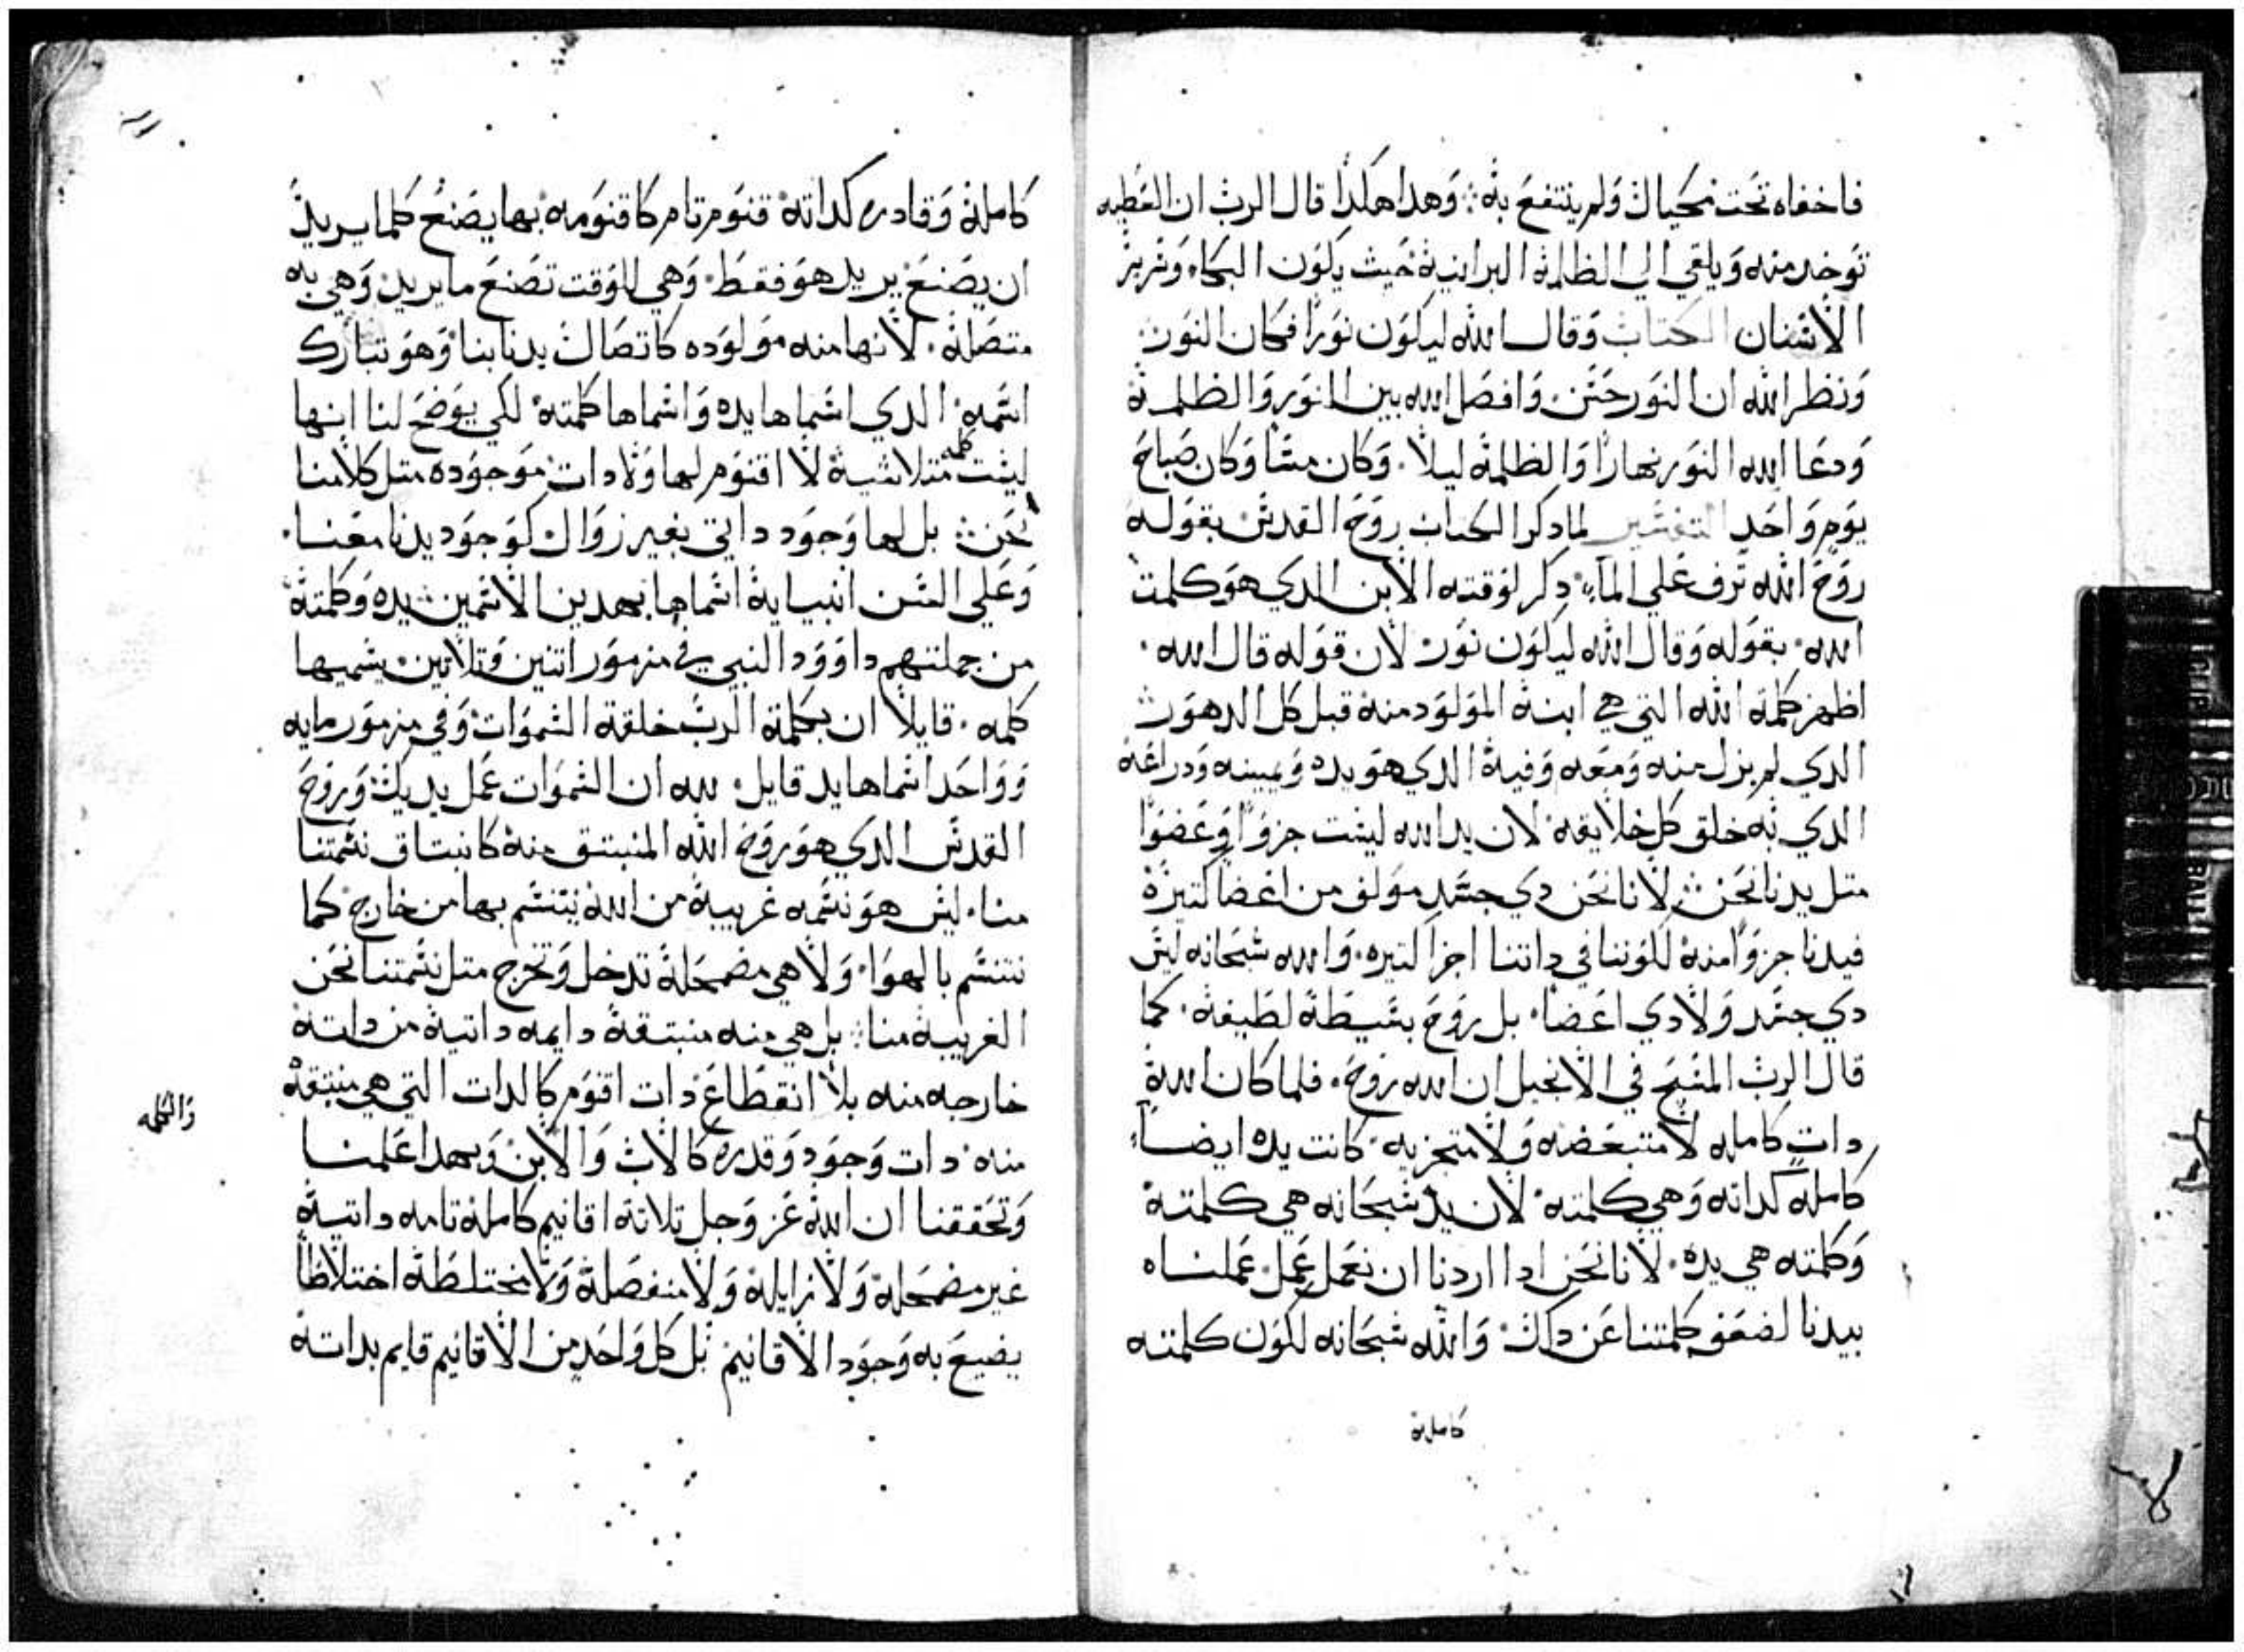 فاخفاه تحت مكيال ولم ينتفع به وهدا هكدا قال الرب ان العطيه
توخد منه ويلقي الي الظلمة البرانية حيث يكون البكاء وصرير
الاسنان الكتاب وقال الله ليكون نورا فكان النور
ونظر الله ان النور حسن وافصل الله بين النور والظلمة
ودعا الله النور نهارا والظلمة ليلا وكان مسا وكان صباح
يوم واحد التفسير لما دكر الكتاب روح القدس بقوله
روح الله ترف علي الماء دكر لوقته الابن الدي هو كلمت
الله بقوله وقال الله ليكون نور لان قوله قال الله
اظهر كلمة الله التي هي ابنة المولود منه قبل كل الدهور
الدي لم يزل منه ومعه وفية الدي هو يده ويمينه ودراعه
الدي به خلق كل خلايقه لان يد الله ليست جزوا وعضوا
متل يدنا نحن لانا نحن دي جسد مولف من اعضا كتيرة
فيدنا جزوا منة لكوننا في داتنا اجزا كتيره والله سبحانه ليس
دي جسد ولا دي اعضا بل روح بسيطة لطيفة كما
قال الرب المسيح في الانجيل ان الله روح فلما كان الله
دات كامله لا متبعضه ولا متجزيه كانت يده ايضا
كاملة كداته وهي كلمته لان يد سبحانه هي كلمتة
وكلمته هي يده لانا نحن ادا اردنا ان نعمل عمل عملناه
بيدنا لضعف كلمتنا عن داك والله سبحانه لكون كلمته
كاملة
كاملة وقادره كداتة قنوم تام كاقنومه بها يصنع كلما يريد
ان يصنع يريد هو فقط وهي للوقت تصنع ما يريد وهي به
متصلة لانها منه مولوده كاتصال يدنا بنا وهو تبارك
اسمه الدي اسماها يده واسماها كلمته لكي يوضح لنا انها
ليست كلمه متلاشية لا اقنوم لها ولا دات موجوده متل كلامنا
نحن بل لها وجود داتي بغير زوال كوجود يدنا معنا
وعلي السن انبيايه اسماها بهدين الاسمين يده وكلمتة
من جملتهم داوود النبي في مزمور اتنين وتلاتين يسميها
كلمه قايلا ان بكلمة الرب خلقة السموات وفي مزمور مايه
وواحد اسماها يد قايل لله ان السموات عمل يديك وروح
القدس الدي هو روح الله المنبتق منة كانبتاق نسمتنا
منا ليس هو نسمه غريبة من الله يتنسم بها من خارج كما
نتنسم بالهوا ولا هي مضمحلة تدخل وتخرج متل نسمتنا نحن
الغريبة منا بل هي منه منبتقة دايمه داتية من داته
خارجه منه بلا انقطاع دات اقنوم كالدات التي هي منبتقة
والكلمه
منه دات وجود وقدره كالاب والابن وبهدا علمنا
وتحققنا ان الله عز وجل تلاتة اقانيم كاملة تامه داتية
غير مضمحلة ولا زايلة ولا منفصلة ولا مختلطة اختلاطا
يضيع به وجود الاقانيم بل كل واحد من الاقانيم قايم بداتة